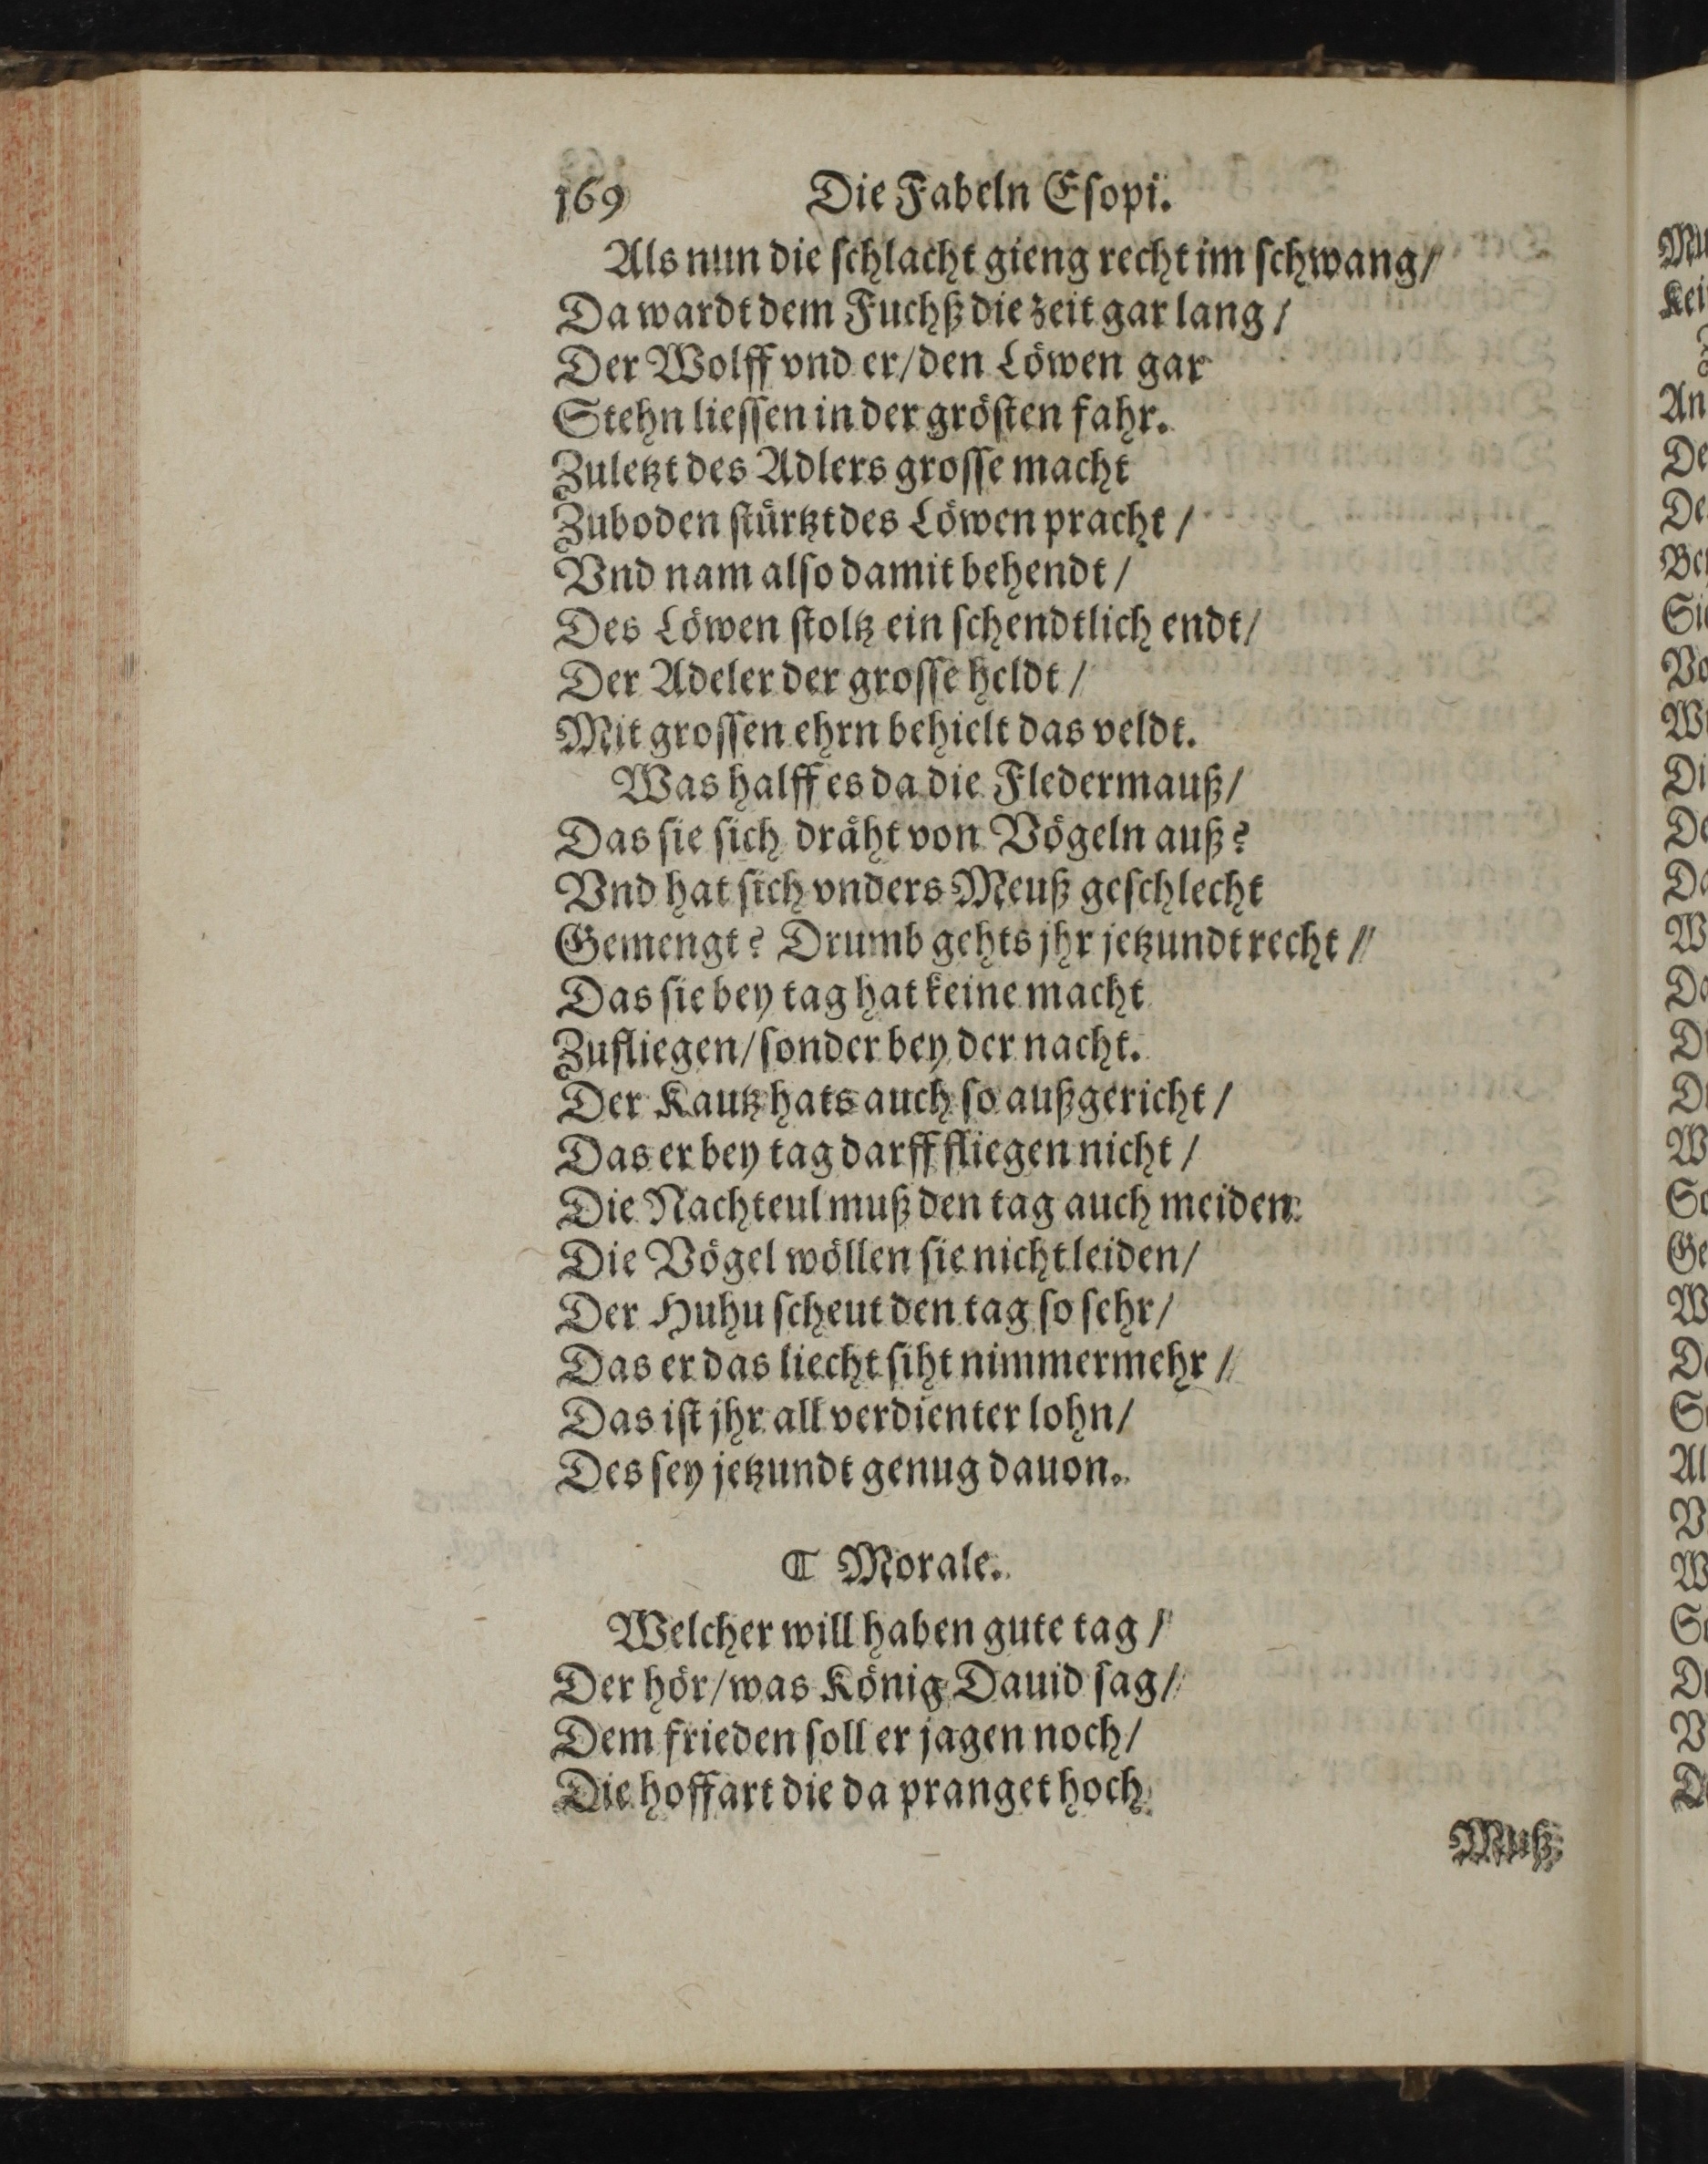 169 Die Fabeln Eſopi.
Als nun die ſchlacht gieng recht im ſchwang/
Da wardt dem Fuchß die zeit gar lang /
Der Wolff vnd er/den Löwen gar
Stehn lieſſen in der gröſten fahr.
Zuletzt des Adlers groſſe macht
Zuboden ſtürtzt des Löwen pracht /
Vnd nam alſo damit behendt /
Des Löwen ſtoltz ein ſchendtlich endt/
Der Adeler der groſſe heldt /
Mit groſſen ehrn behielt das veldt.
Was halff es da die Fledermauß/
Das ſie ſich dräht von Vögeln auß?
Vnd hat ſich vnders Meuß geſchlecht
Gemengt? Drumb gehts jhr jetzundt recht /
Das ſie bey tag hat keine macht
Zufliegen/ſonder bey der nacht.
Der Kautz hats auch ſo außgericht /
Das er bey tag darff fliegen nicht /
Die Nachteul muß den tag auch meiden:
Die Vögel wöllen ſie nicht leiden/
Der Huhu ſcheut den tag ſo ſehr/
Das er das liecht ſiht nimmermehr /
Das iſt jhr all verdienter lohn/
Des ſey jetzundt genug dauon.
❡ Morale.
Welcher will haben gute tag /
Der hör/was König Dauid ſag/
Dem frieden ſoll er jagen noch/
Die hoffart die da pranget hoch
Muß